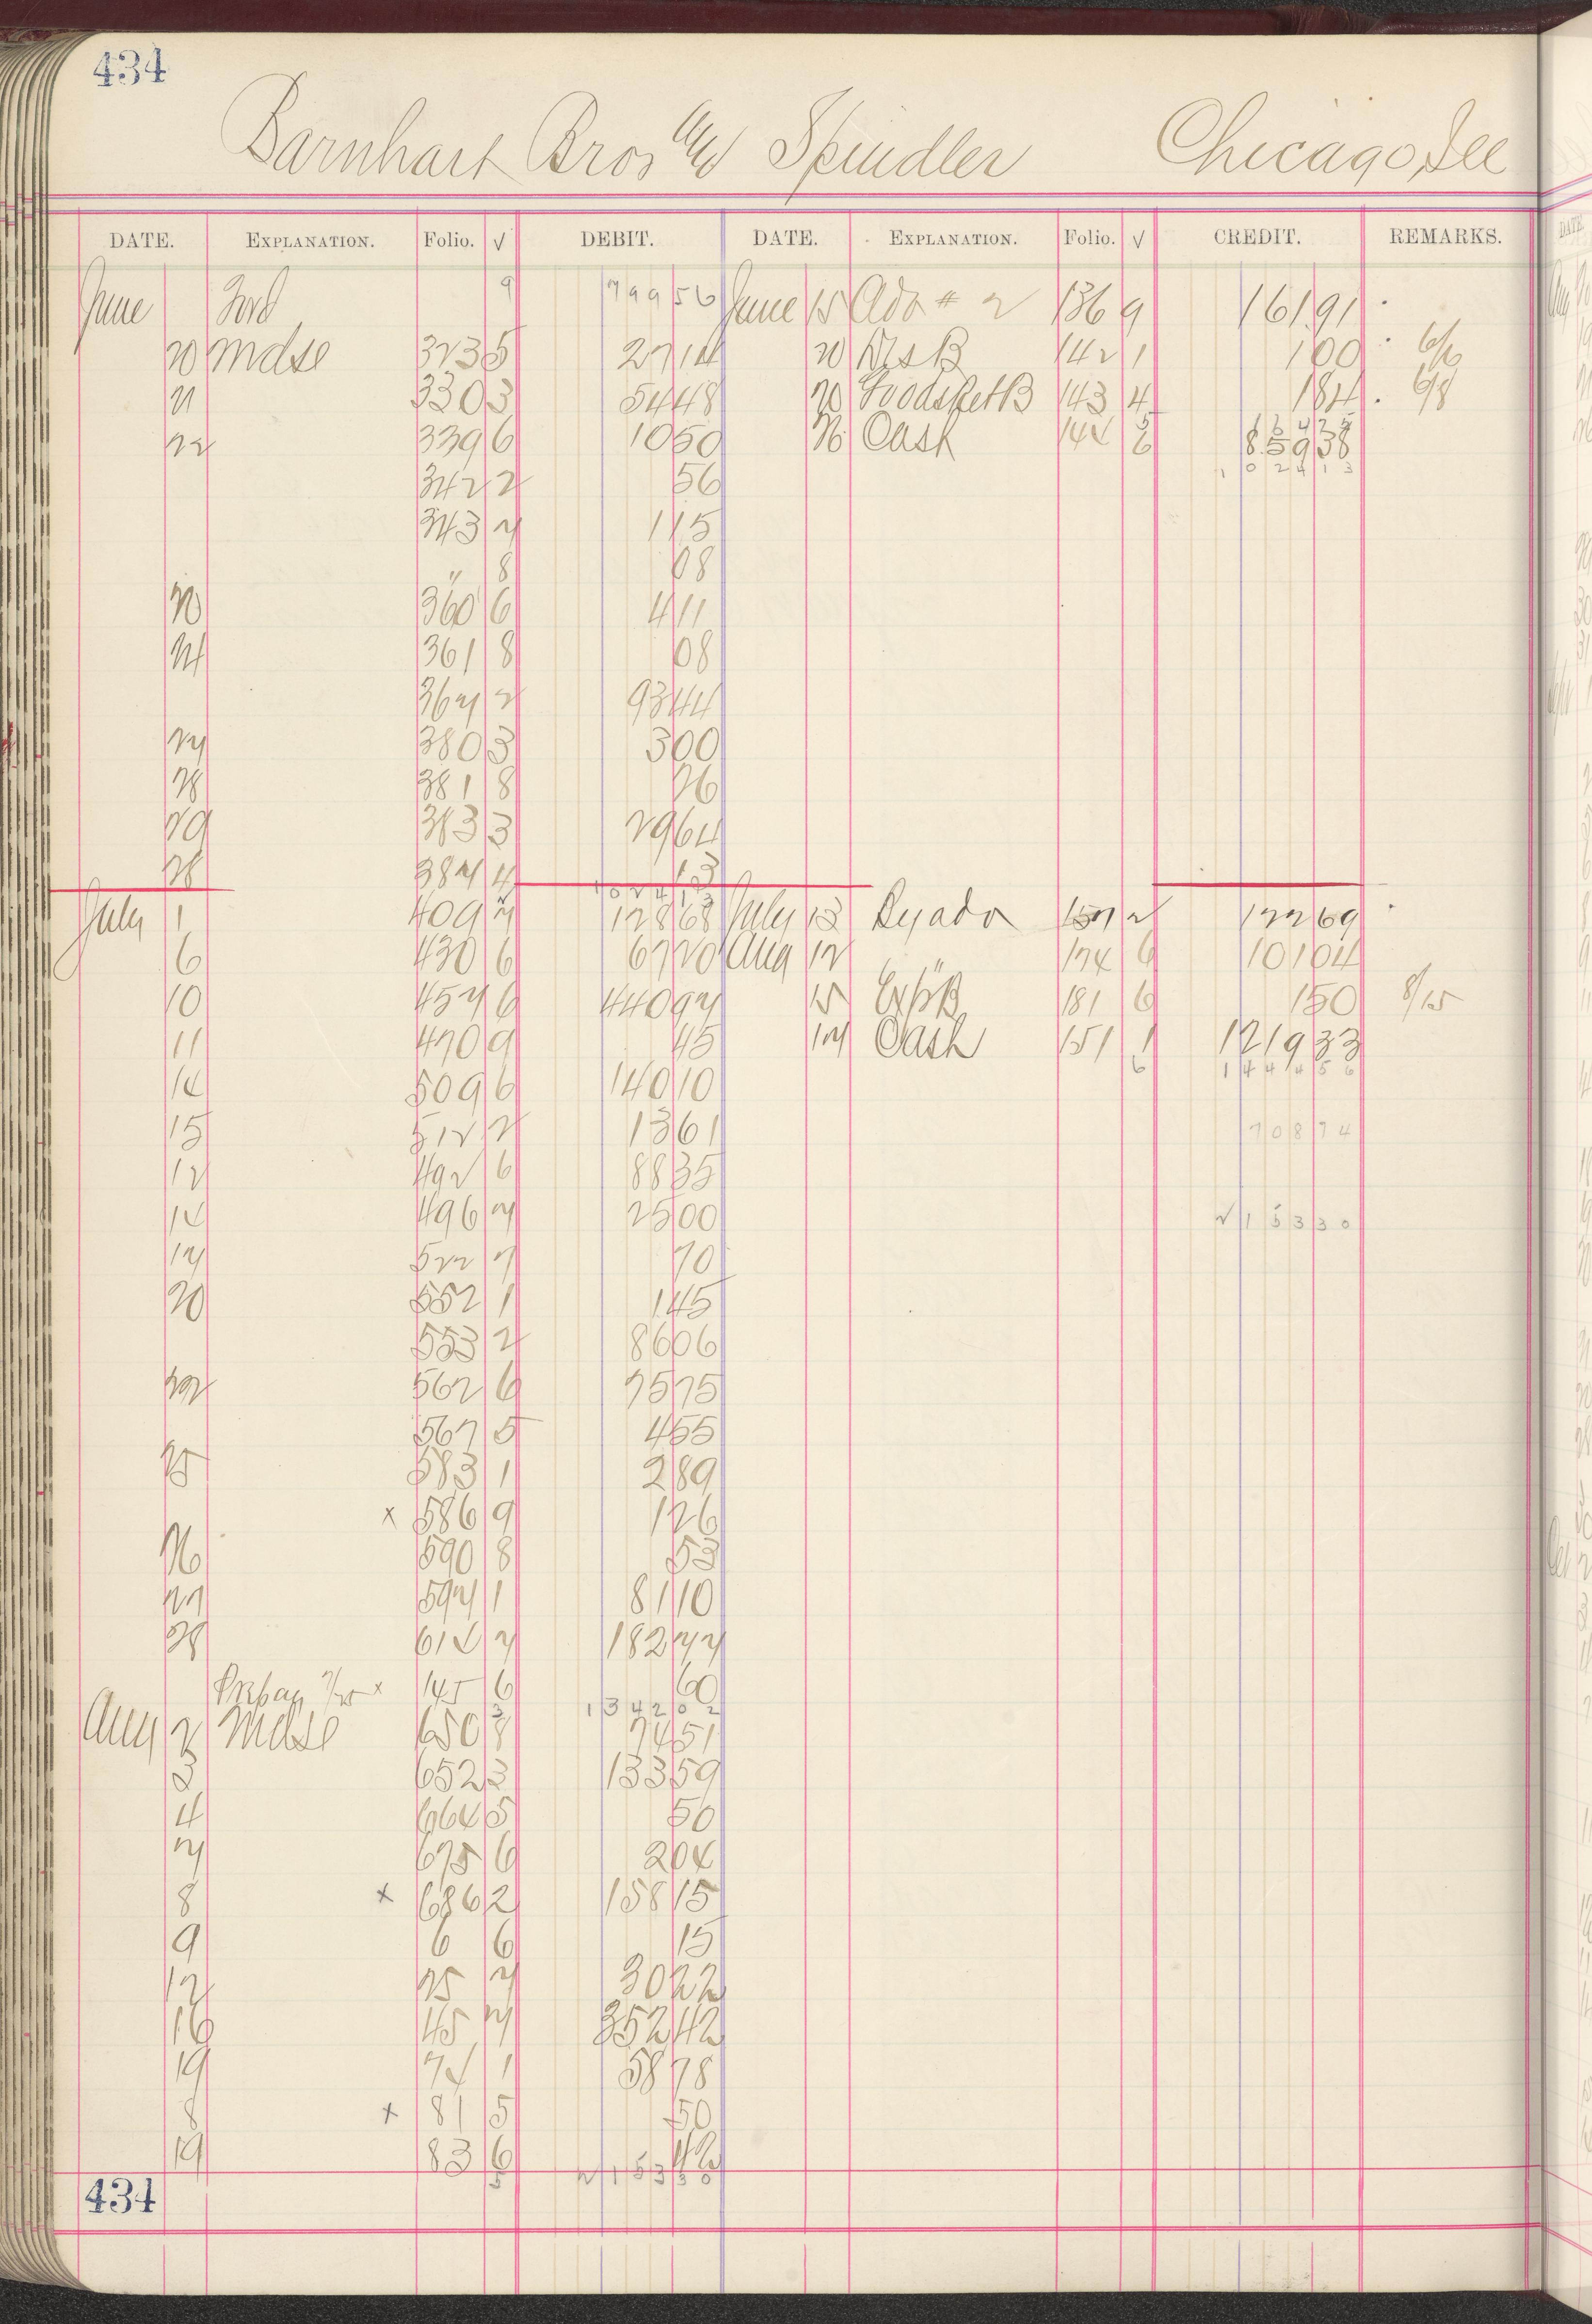 434
Barnhart Bros & Spindler Chicago, Ill
DATE. EXPLANATION. Folio. √ DEBIT. DATE. EXPLANATION. Folio. √ CREDIT. REMARKS.
June Ford 9 799 56 June 15 136 9 161 91
20 Mdse 323 5 27 14 20 142 1 1 00 6/6
21 330 3 54 48 143 4 1 84 6/8
22 339 6 10 50 26 Cash 859 38
342 2 56 1 0 2 4 1 3
343 7 1 15
" 8 08
360 6 4 11
24 361 8 08
367 2 93 44
27 380 3 3 00
28 381 8 26
29 383 3 29 64
28 387 4 13
July 1 409 128 68 July 13 157 2 122 69
6 430 6 67 20 Aug 12 174 6 101 04
10 457 6 440 97 15 181 6 1 50 8/15
11 470 9 45 17 Cash 151 1 1219 33
14 509 6 140 10 1 4 4 4 5 6
15 512 2 13 61 7 0 8 7 4
12 492 6 88 35
14 496 7 25 00 2 1 5 3 3 0
17 522 7 70
20 552 1 1 45
553 2 86 06
562 6 75 75
567 5 4 55
25 583 1 2 89
x 586 9 1 26
26 590 8 53
27 597 1 81 10
28 614 7 182 77
x 145 6 60
1 3 4 2 0 2
Aug 2 Mdse 650 74 51
3 652 3 133 59
4 664 5 50
7 675 6 2 04
8 x 686 2 158 15
9 6 6 15
12 25 7 30 22
16 45 7 352 42
19 74 1 58 78
8 x 81 5 50
19 83 6 42
2 1 5 3 3 0
434